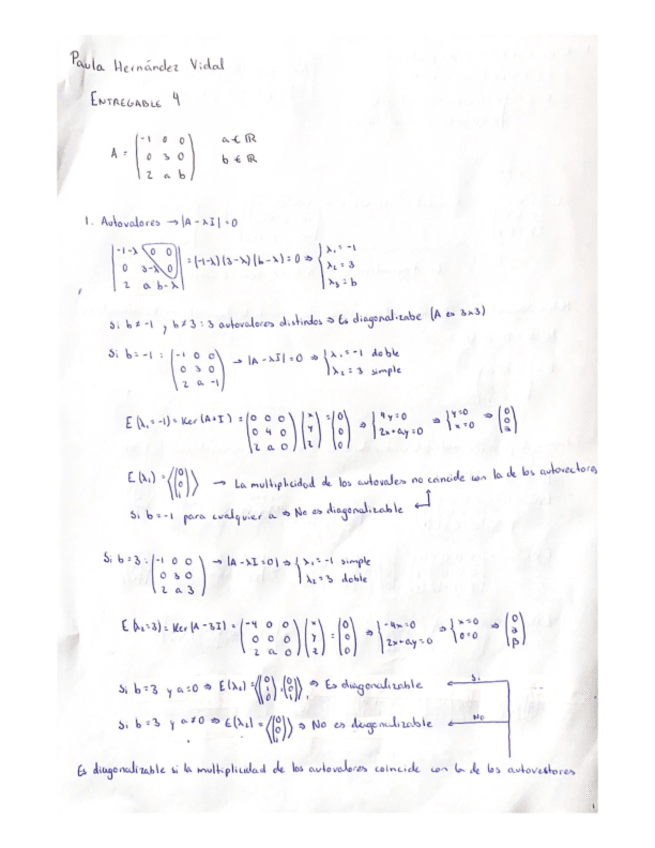 Paula Hernández Vidal
ENTREGABLE 4
A = (-1 0 0 / 0 3 0 / 2 a b) a ∈ ℝ b ∈ ℝ
1. Autovalores → |A - λI| = 0
|-1-λ 0 0 / 0 3-λ 0 / 2 a b-λ| = (-1-λ)(3-λ)(b-λ) = 0 ⇒ { λ₁ = -1 / λ₂ = 3 / λ₃ = b
Si b ≠ -1, b ≠ 3 : 3 autovalores distindos ⇒ Es diagonalizabe (A es 3x3)
Si b = -1 : (-1 0 0 / 0 3 0 / 2 a -1) → |A - λI| = 0 ⇒ { λ₁ = -1 doble / λ₂ = 3 simple
E(λ₁ = -1) = Ker(A+I) = (0 0 0 / 0 4 0 / 2 a 0) (x / y / z) = (0 / 0 / 0) ⇒ { 4y = 0 / 2x+ay = 0 ⇒ { y = 0 / x = 0 ⇒ (0 / 0 / a)
E(λ₁) = ⟨(0 / 0 / 1)⟩ → La multiplicidad de los autovales no coincide con la de los autovectores
Si b = -1 para cualquier a ⇒ No es diagonalizable
Si b = 3 : (-1 0 0 / 0 3 0 / 2 a 3) → |A - λI = 0| ⇒ { λ₁ = -1 simple / λ₂ = 3 doble
E(λ₂ = 3) = Ker(A - 3I) = (-4 0 0 / 0 0 0 / 2 a 0) (x / y / z) = (0 / 0 / 0) ⇒ { -4x = 0 / 2x+ay = 0 ⇒ { x = 0 / 0 = 0 ⇒ (0 / a / β)
Si b = 3 y a = 0 ⇒ E(λ₂) = ⟨(0 / 1 / 0), (0 / 0 / 1)⟩ ⇒ Es diagonalizable ← Si
Si b = 3 y a ≠ 0 ⇒ E(λ₂) = ⟨(0 / 0 / 1)⟩ ⇒ No es diagonalizable ← No
Es diagonalizable si la multiplicidad de los autovalores coincide con la de los autovectores